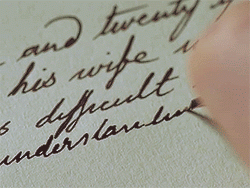 and twenty
his wife
difficult